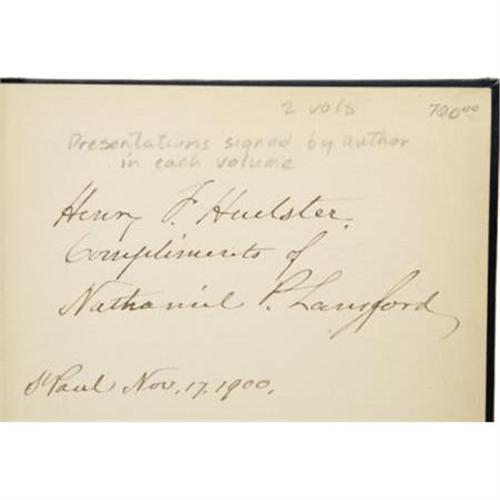 2 vols 700.00
Presentations signed by author
in each volume
Henry F. Huelster.
Compliments of
Nathaniel P. Langford
St Paul Nov. 17, 1900.